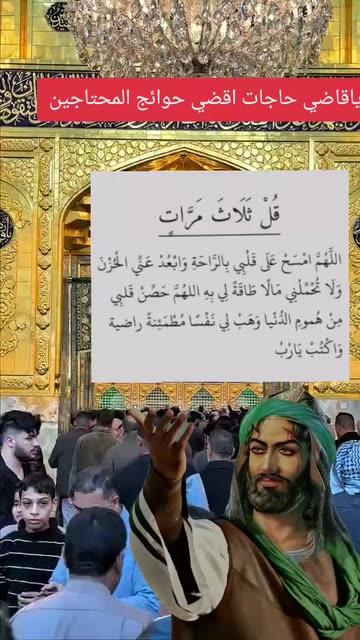 ياقاضي حاجات اقضي حوائج المحتاجين
قُلْ ثَلَاثَ مَرَّاتٍ
اللَّهُمَّ امْسَحْ عَلَى قَلْبِي بِالرَّاحَةِ وَابْعُدْ عَنِّي الْحُزْنَ
وَلَا تُحَمِّلْنِي مَالًا طَاقَةً لِي بِهِ اللهُمَّ حَصِّنْ قَلْبِي
مِنْ هُمومِ الدُّنْيا وَهَبْ لِي نَفْسًا مُطْمَئِنَةً راضية
وَاكْتُبْ يَارَبُ